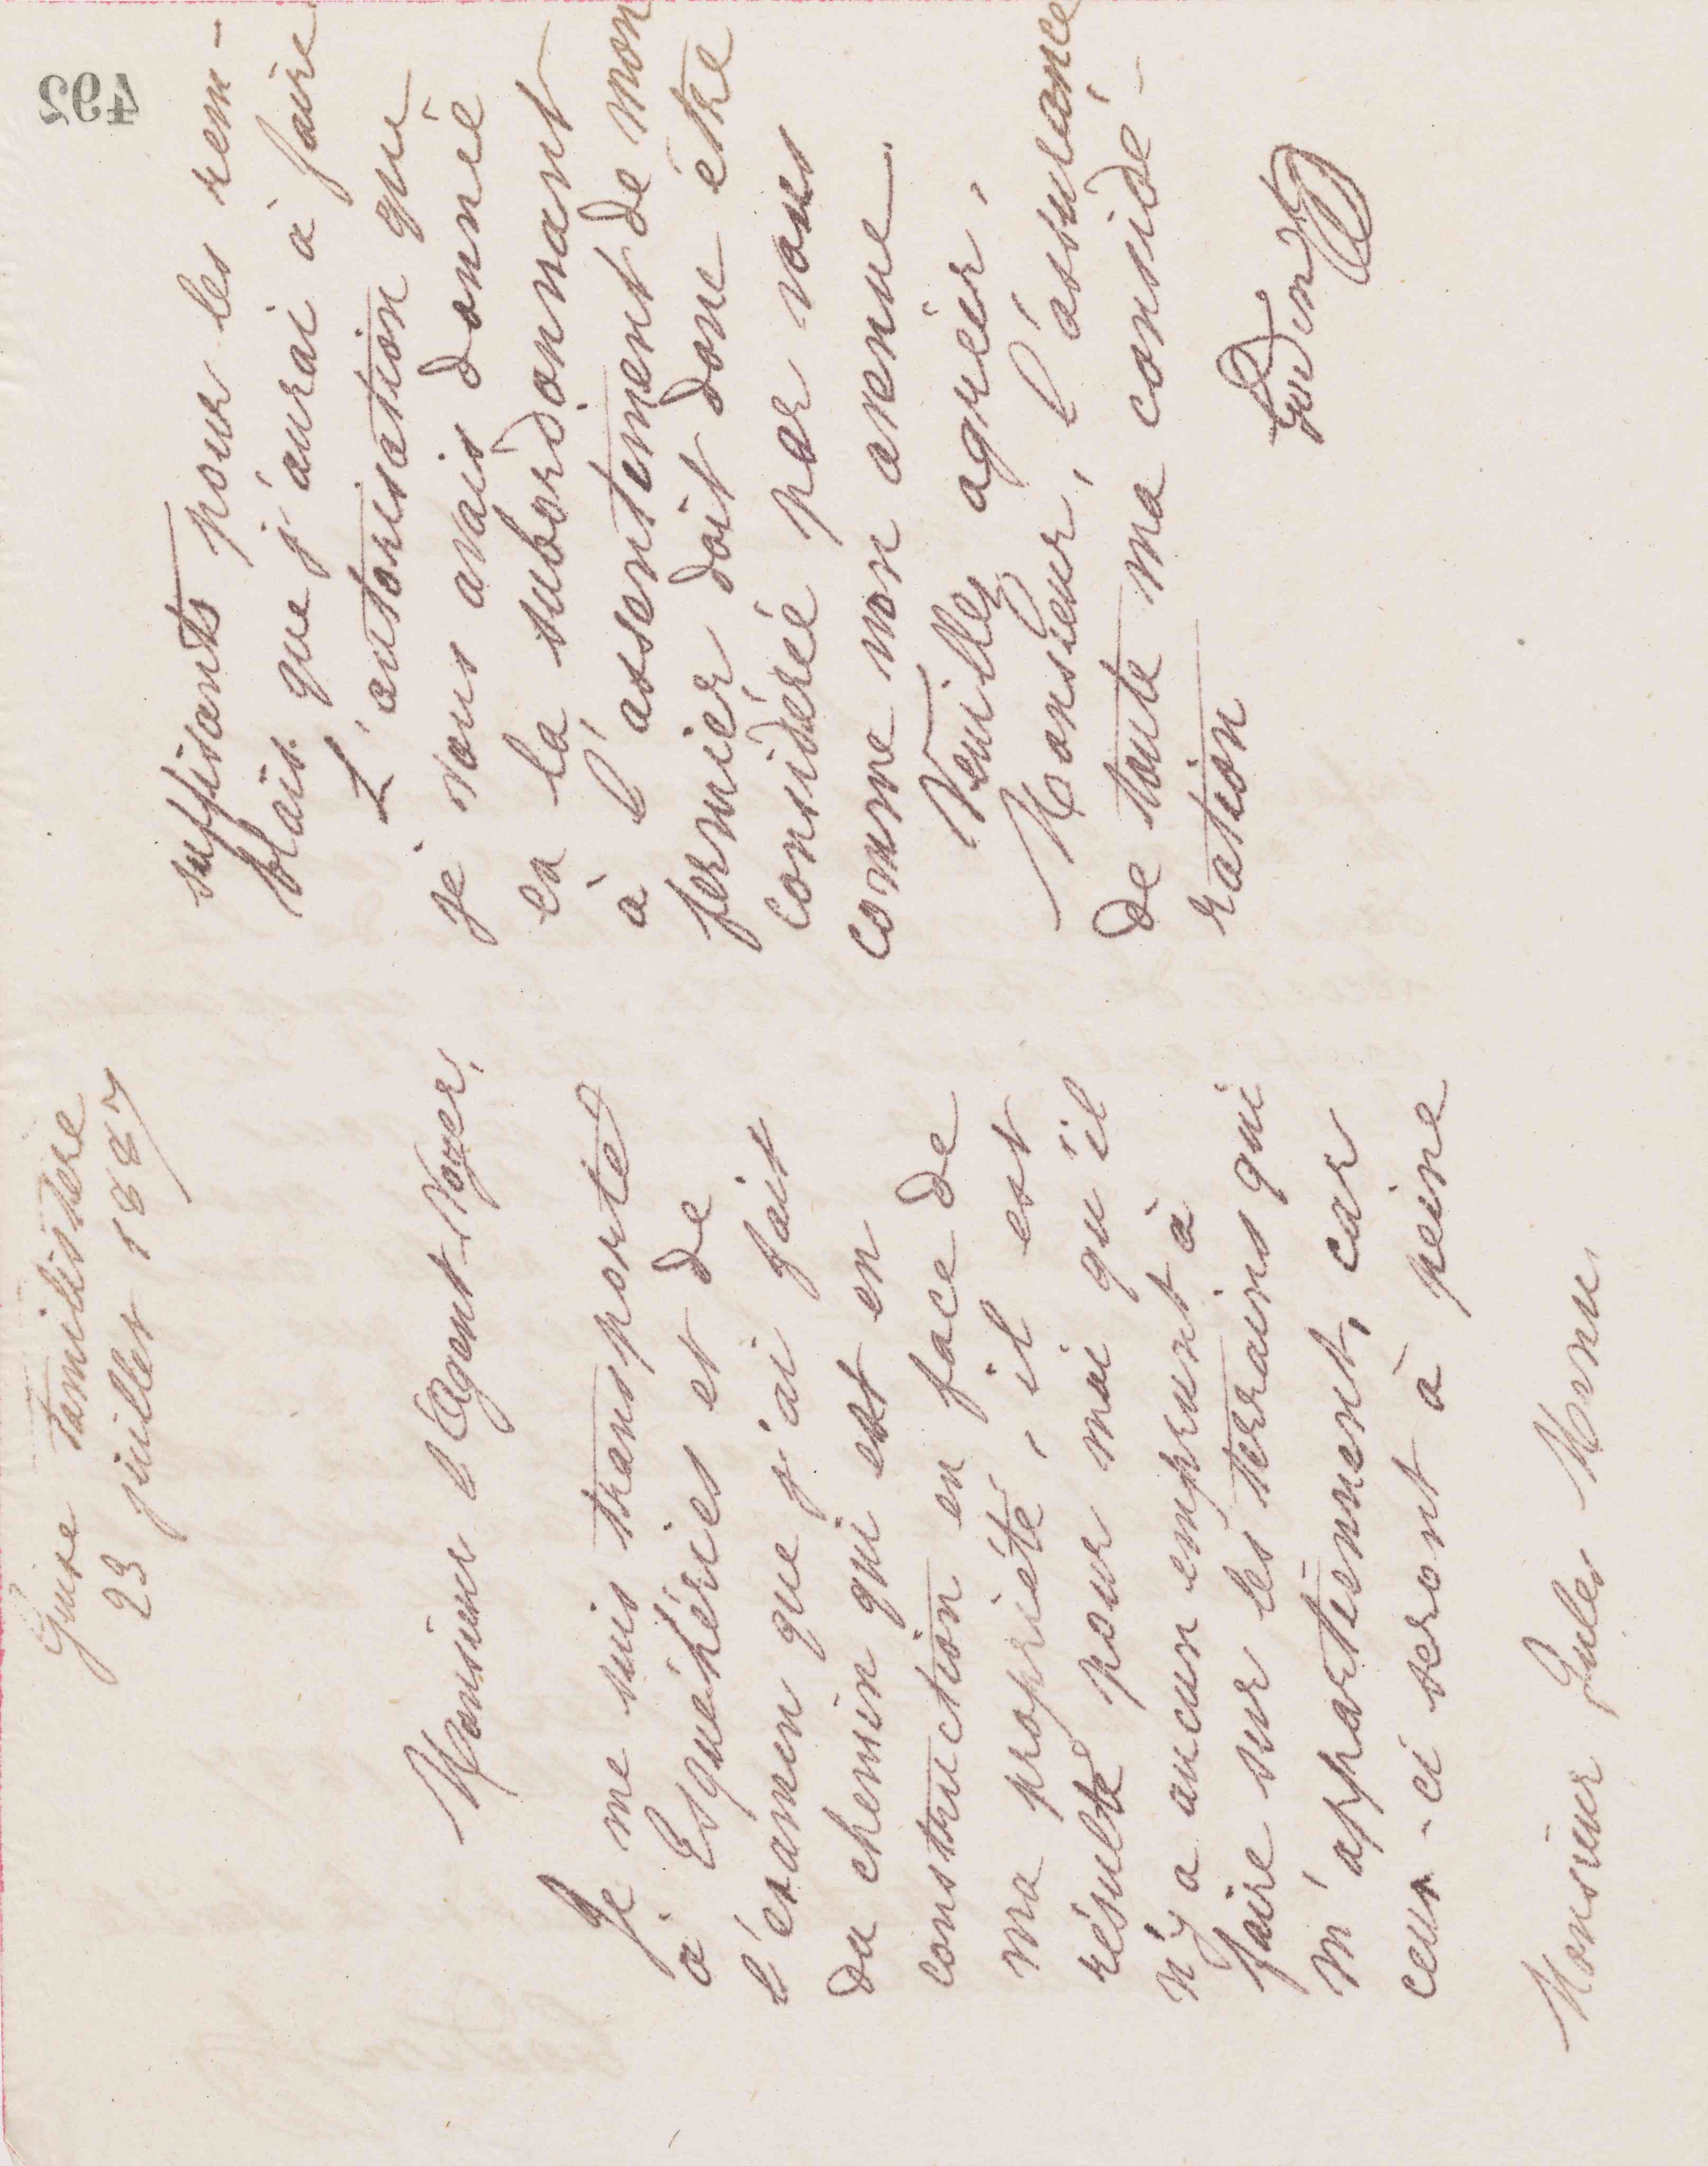 Guise Familistère
23 juillet 1887
Monsieur l'Agent-Voyer,
Je me suis transporté
à Esquéhéries et de
l'examen que j'ai fait
du chemin qui est en
construction en face de
ma propriété, il est
résulté pour moi qu'il
n'y a aucun emprunt à
faire sur les terrains qui
m'appartiennent, car
ceux-ci seront à peine
Monsieur Jules Menu
suffisants pour les rem-
blais que j'aurai à faire
L'autorisation que
je vous avais donnée
en la subordonnant
à l'assentiment de mon
fermier doit donc être
considérée par vous
comme non avenue.
Veuillez agréer,
Monsieur, l'assurance
de toute ma considé-
ration
Godin
492